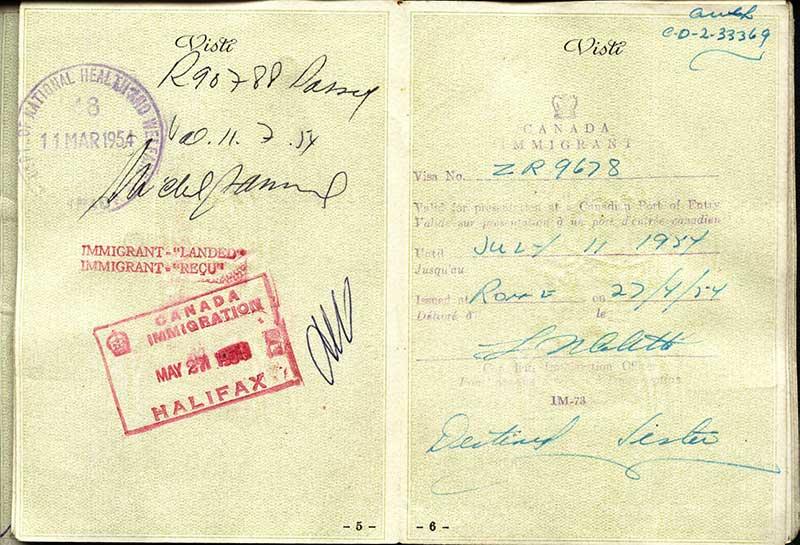 Visti
R90788
11.7.54
OF NATIONAL HEALTH AND WELFARE
18
11 MAR 1954
IMMIGRANT - "LANDED"
IMMIGRANT - "REÇU"
CANADA
IMMIGRATION
MAY 27
HALIFAX
- 5 -
Visti
C-D-2-33369
CANADA
IMMIGRANT
Visa No. ZR9678
Valid for presentation at Canadian Port of Entry
Valide sur présentation à un port d'entrée canadien
Until JULY 11 1954
Jusqu'au
Issued at Rome on 27/4/54
Délivré à le
IM-73
Destined Sister
- 6 -